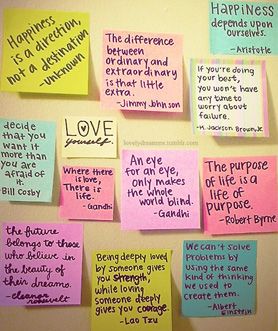 Happiness
is a direction,
not a destination
-unknown
The difference
between
ordinary and
extraordinary
is that little
extra.
-Jimmy Johnson
HAPPiNESS
depends upon
ourselves.
-Aristotle
If you're doing
your best,
you won't have
any time to
worry about
failure.
-H. Jackson Brown, Jr.
decide
that you
want it
more than
you are
afraid of
it.
- Bill Cosby
LOVE
yourself.
lovelydreamms.tumblr.com
Where there
is love,
There is
life.
-Gandhi
An eye
for an eye,
only makes
the whole
world blind.
-Gandhi
The purpose
of life is a
life of
purpose.
-Robert Byrne
the future
belongs to those
who believe in
the beauty of
their dreams.
-eleanor
roosevelt
Being deeply loved
by someone gives
you strength,
while loving
someone deeply
gives you courage.
-Lao Tzu
We can't solve
problems by
using the same
kind of thinking
we used to
create them.
-Albert
Einstein